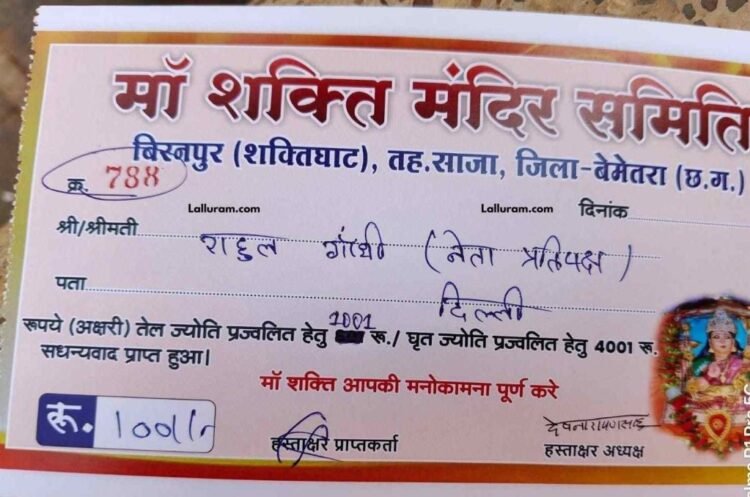 माँ शक्ति मंदिर समिति
बिरनपुर (शक्तिघाट), तह.साजा, जिला-बेमेतरा (छ.ग.)
क्र. 788
Lalluram.com Lalluram.com दिनांक
श्री/श्रीमती राहुल गाँधी (नेता प्रतिपक्ष)
पता दिल्ली
रूपये (अक्षरी) तेल ज्योति प्रज्वलित हेतु 1001 रू./ घृत ज्योति प्रज्वलित हेतु 4001 रू.
सधन्यवाद प्राप्त हुआ।
माँ शक्ति आपकी मनोकामना पूर्ण करे
रू. 1001/-
हस्ताक्षर प्राप्तकर्ता
हस्ताक्षर अध्यक्ष